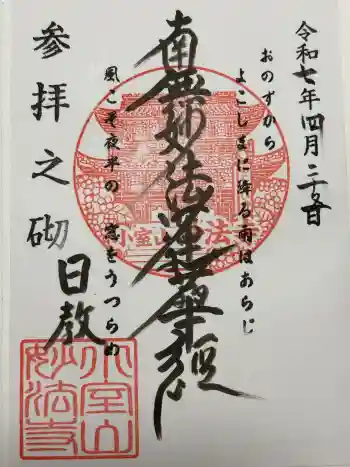 令和七年四月二十五日
おのずから
よこしまに降る雨はあらじ
南無妙法蓮華経
風こそ夜半の窓をうつらめ
参拝之砌
日教
小室山妙法寺
小室山
妙法寺